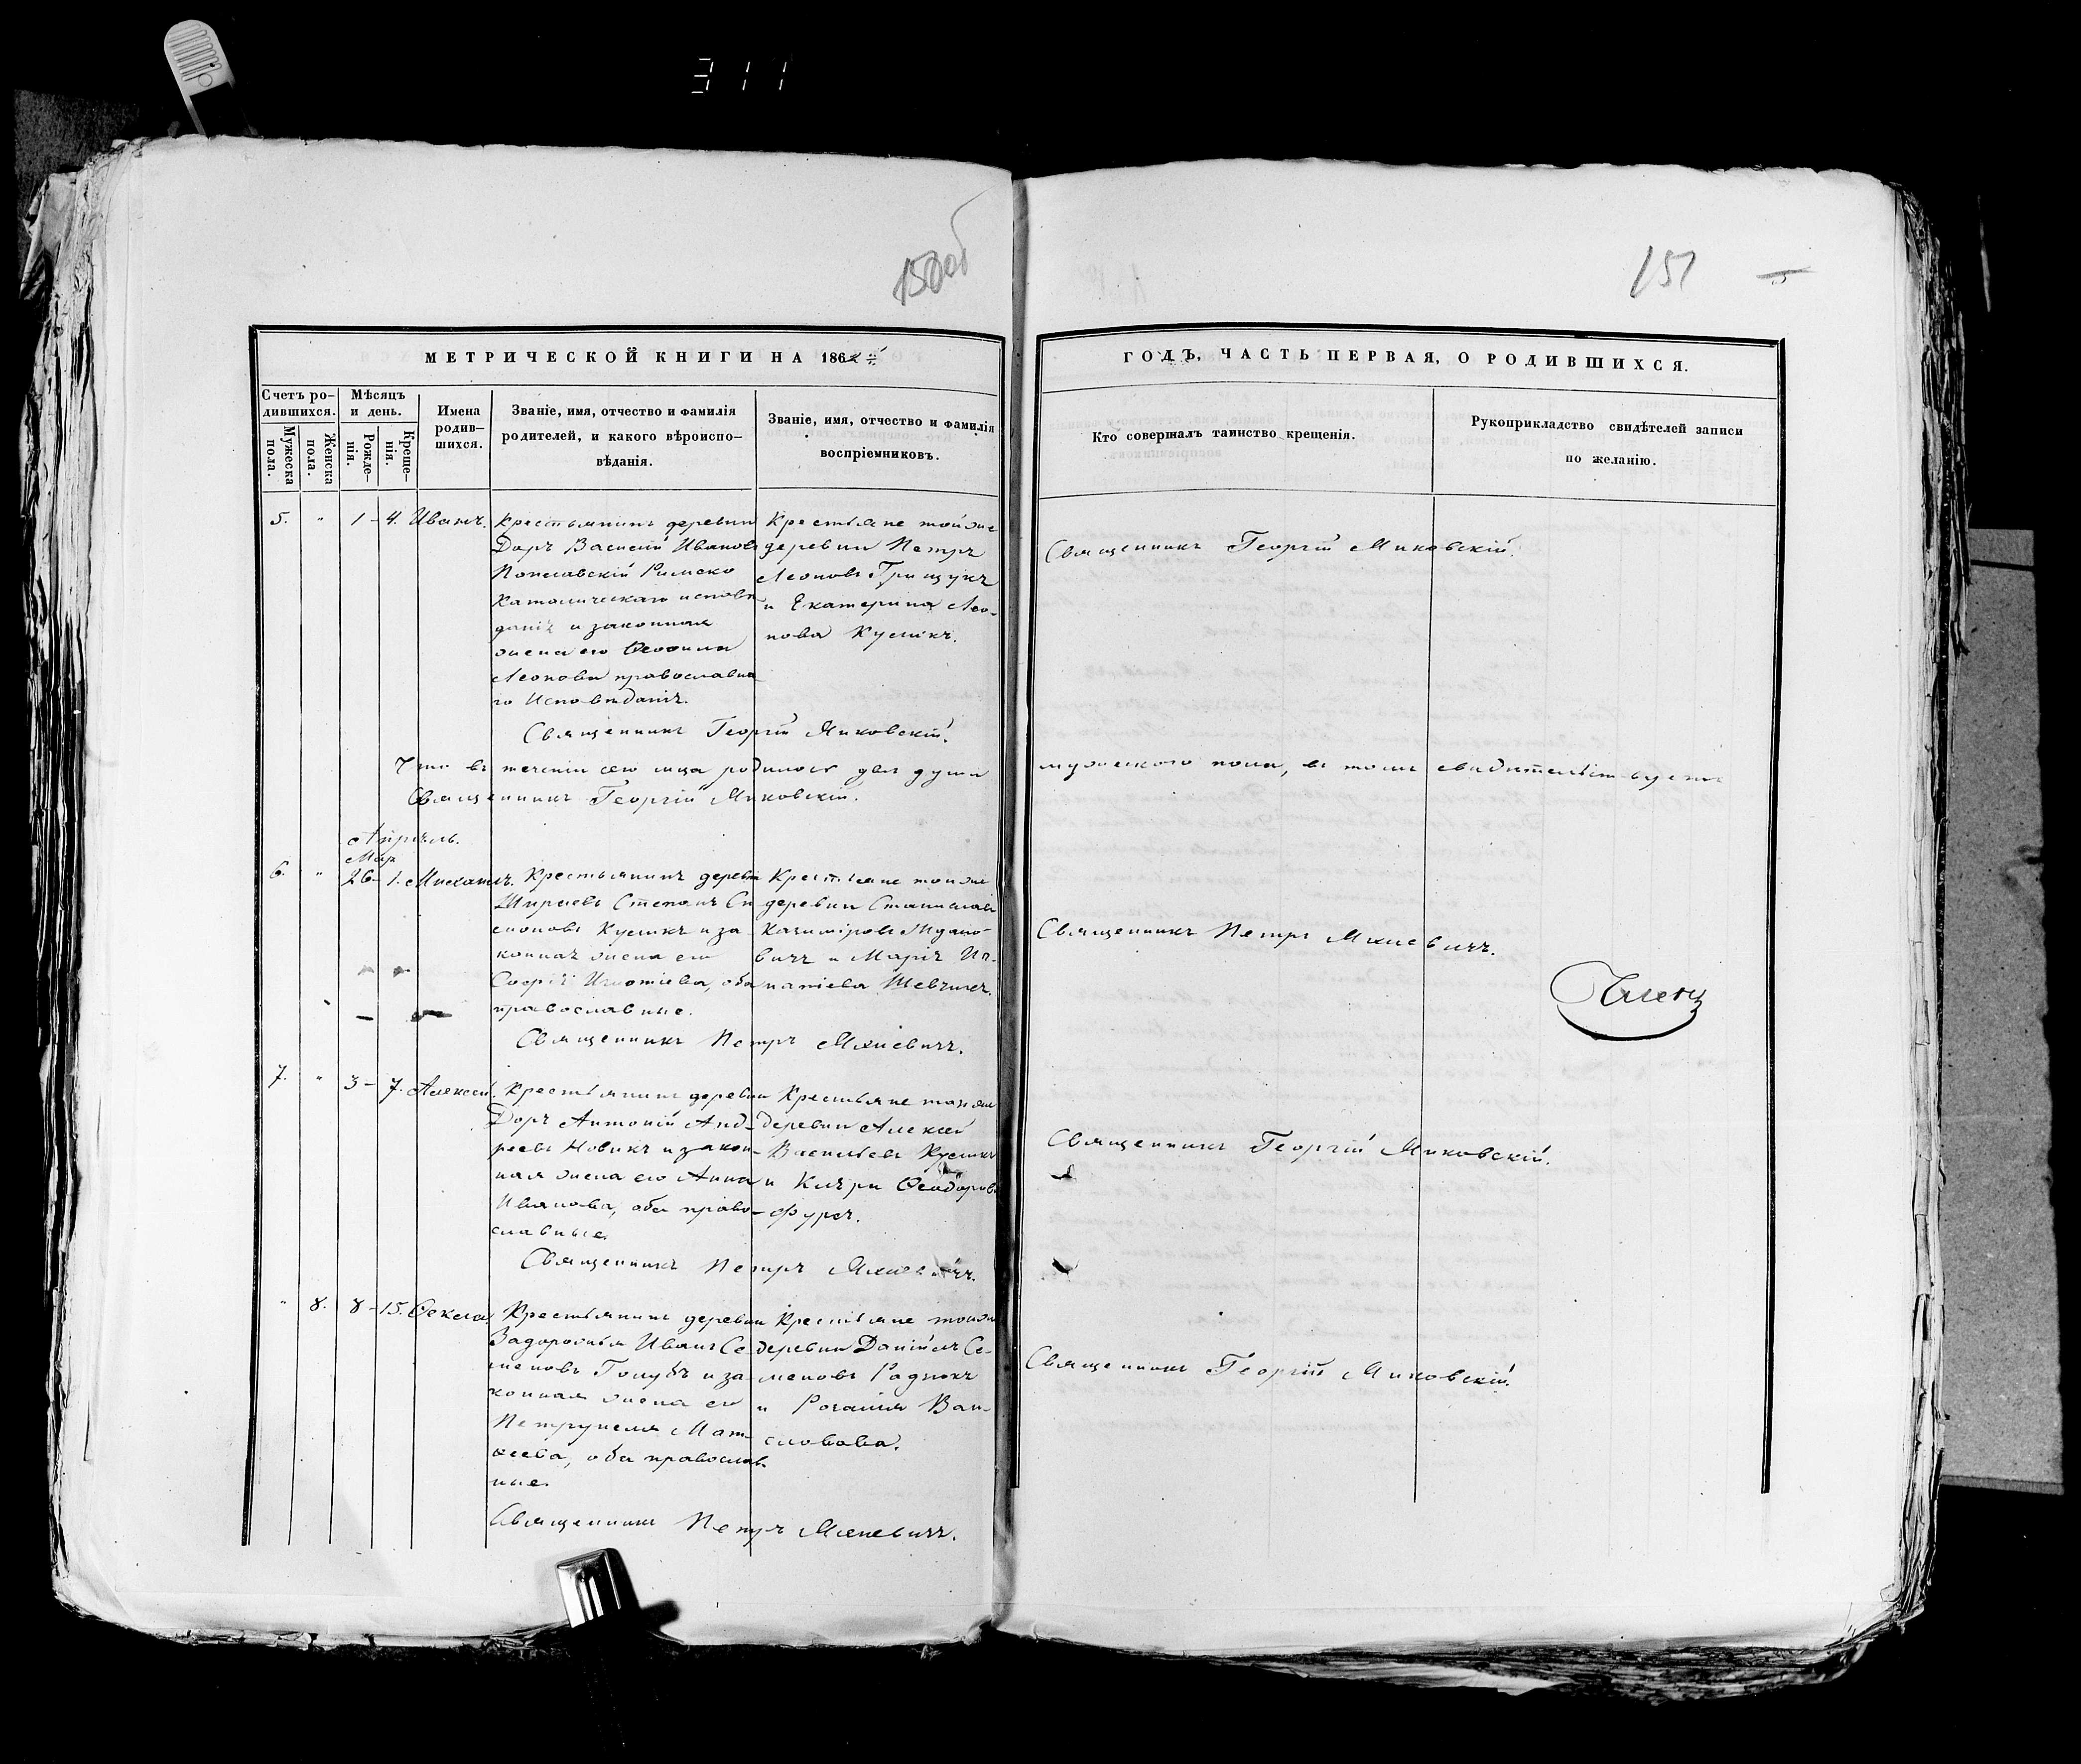 311
150об
151
МЕТРИЧЕСКОЙ КНИГИ НА 186
ГОДЪ, ЧАСТЬ ПЕРВАЯ, О РОДИВШИХСЯ.
Счетъ ро-
дившихся.
Мужеска
пола.
Женска
пола.
Мѣсяцъ
и день.
Рожде-
нія.
Креще-
нія.
Имена
родив-
шихся.
Званіе, имя, отчество и фамилія
родителей, и какого вѣроиспо-
вѣданія.
Званіе, имя, отчество и фамилія
воспріемниковъ.
Кто совершалъ таинство крещенія.
Рукоприкладство свидѣтелей записи
по желанію.
5. " 1 - 4. Иванъ.
Крестьянинъ деревни
Доръ Василій Ивановъ
Римско
Католическаго исповѣ
данія и законная
жена его
Леонова православна
го Исповѣданія.
Крестьяне той же
деревни Петръ
Леоновъ Грицукъ
и Екатерина Лео-
нова Кусикъ.
Священникъ Георгій Миковскій.
Священникъ Георгій Миковскій.
Что въ теченіи сего мца родилось двѣ души
мужескаго пола, въ томъ свидѣтельствуемъ
Священникъ Георгій Миковскій.
Апрѣль.
Мар
6. " 26 - 1. Михаилъ.
Крестьянинъ деревни
Степанъ Си
моновъ Кусикъ и за
конная жена его
Софія Игнатіева, оба
православные.
Крестьяне той же
деревни Станиславъ
Казиміровъ
вичъ и Марія Иг-
натіева Шевчикъ.
Священникъ Петръ
Священникъ Петръ
7. " 3 - 7. Алексій.
Крестьянинъ деревни
Доръ Антоній Анд-
реевъ Новикъ и закон-
ная жена его Анна
Иванова, оба право-
славные.
Крестьяне той же
деревни Алексѣй
Васильевъ Кусикъ
и Ѳеодорова
Фурсъ.
Священникъ Георгій Миковскій.
Священникъ Петръ
" 8. 8 - 15. Ѳекла.
Крестьянинъ деревни
Задорожья Иванъ Се
меновъ Голубъ и за
конная жена его
Петрунеля Мат-
вѣева, оба православ
ные.
Крестьяне той же
деревни Даніилъ Се-
меновъ Радюкъ
и Розалія
Священникъ Георгій Миковскій.
Священникъ Петръ